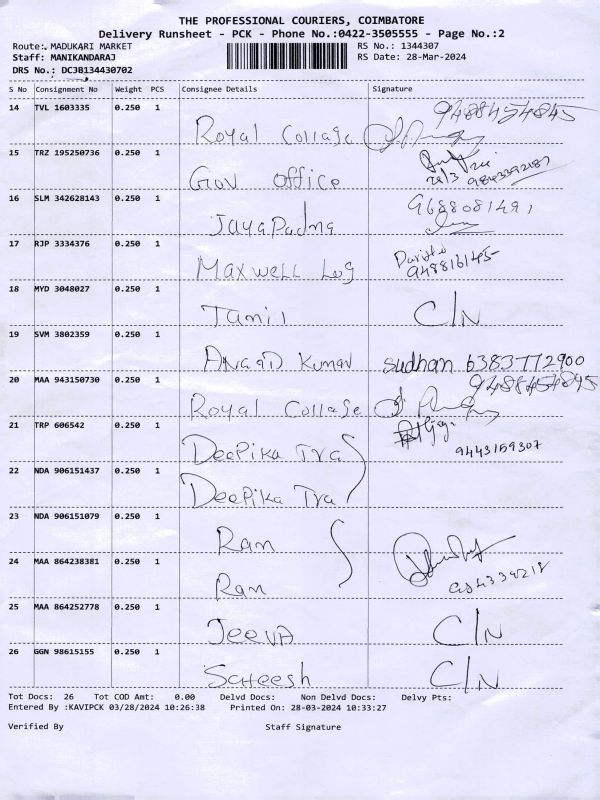 THE PROFESSIONAL COURIERS, COIMBATORE
Delivery Runsheet - PCK - Phone No.:0422-3505555 - Page No.:2
Route: MADUKARI MARKET RS No.: 1344307
Staff: MANIKANDARAJ RS Date: 28-Mar-2024
DRS No.: DCJB134430702
S No Consignment No Weight PCS Consignee Details Signature
14 TVL 1603335 0.250 1 Royal Collage 9488454845
15 TRZ 195250736 0.250 1 Gov office 28/3
16 SLM 342628143 0.250 1 JayaPadma 9688081491
17 RJP 3334376 0.250 1 Maxwell Log 948816145
18 MYD 3048027 0.250 1 Tamil C/N
19 SVM 3802359 0.250 1 Anand Kumar sudhan 6383772900
20 MAA 943150730 0.250 1 Royal Collage 9488454845
21 TRP 606542 0.250 1 Deepika Tra 9443159307
22 NDA 906151437 0.250 1 Deepika Tra
23 NDA 906151079 0.250 1 Ram
24 MAA 864238381 0.250 1 Ram
25 MAA 864252778 0.250 1 Jeeva C/N
26 GGN 98615155 0.250 1 Satheesh C/N
Tot Docs: 26 Tot COD Amt: 0.00 Delvd Docs: Non Delvd Docs: Delvy Pts:
Entered By :KAVIPCK 03/28/2024 10:26:38 Printed On: 28-03-2024 10:33:27
Verified By Staff Signature